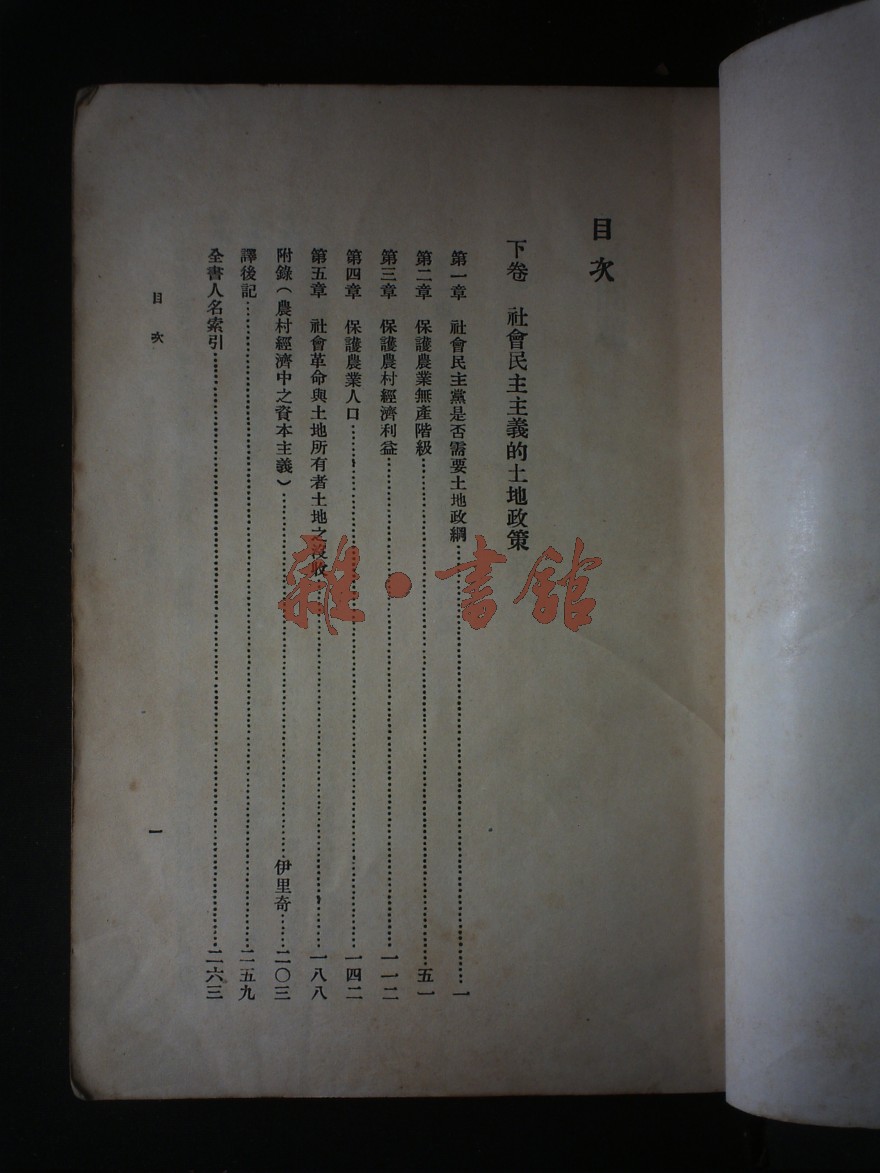 目次
下卷 社會民主主義的土地政策
第一章 社會民主黨是否需要土地政綱……一
第二章 保護農業無產階級……五一
第三章 保護農村經濟利益……一一二
第四章 保護農業人口……一四二
第五章 社會革命與土地所有者土地之沒收……一八八
附錄(農村經濟中之資本主義)……伊里奇……二〇三
譯後記……二五九
全書人名索引……二六三
目次 一
雜·書館